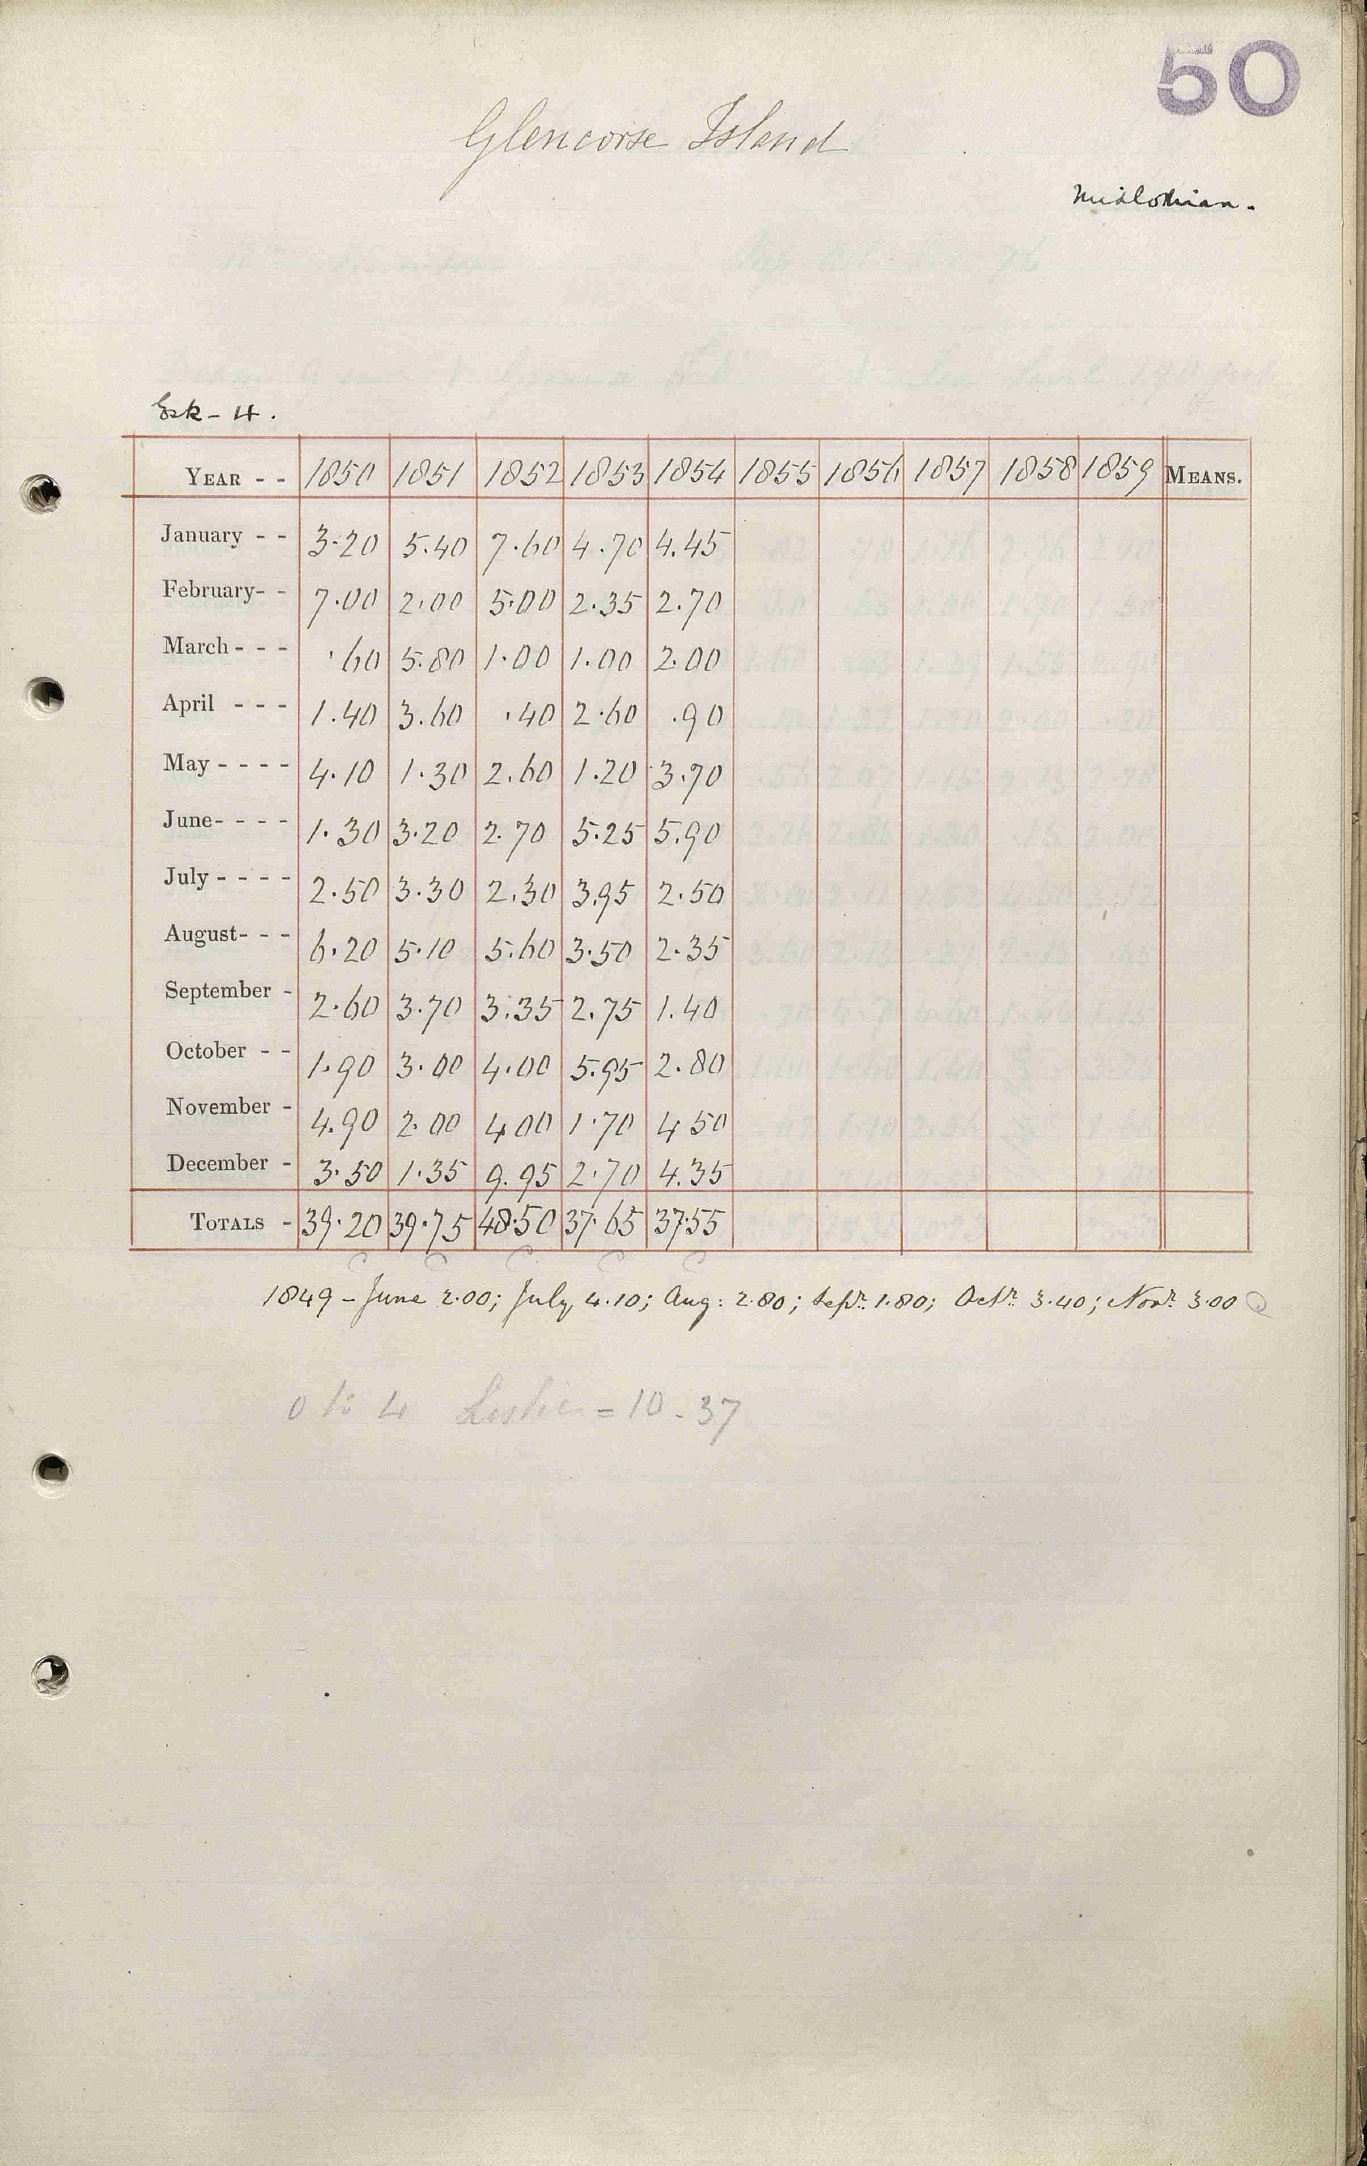 50
Glencorse Island
Midlothian.
Esk - 4.
YEAR - - 1850 1851 1852 1853 1854 1855 1856 1857 1858 1859 MEANS.
January - - 3.20 5.40 7.60 4.70 4.45
February - - 7.00 2.00 5.00 2.35 2.70
March - - - .60 5.80 1.00 1.00 2.00
April - - - 1.40 3.60 .40 2.60 .90
May - - - - 4.10 1.30 2.60 1.20 3.70
June - - - - 1.30 3.20 2.70 5.25 5.90
July - - - - 2.50 3.30 2.30 3.95 2.50
August - - - 6.20 5.10 5.60 3.50 2.35
September - 2.60 3.70 3.35 2.75 1.40
October - - 1.90 3.00 4.00 5.95 2.80
November - 4.90 2.00 4 00 1.70 4 50
December - 3.50 1.35 9.95 2.70 4.35
TOTALS - 39.20 39.75 48.50 37.65 37.55
1849 - June 2.00; July 4.10; Aug: 2.80; Sepr. 1.80; Octr. 3.40; Novr. 3.00
0 to 4 Leslie = 10.37